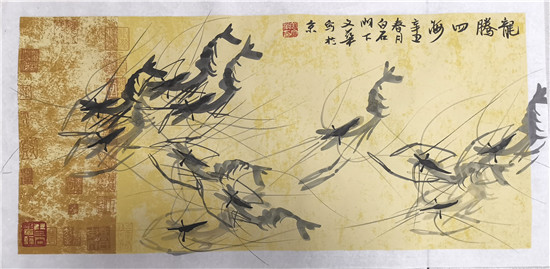 龍騰四海
辛丑
春月
白石
門下
文華
寫於
京